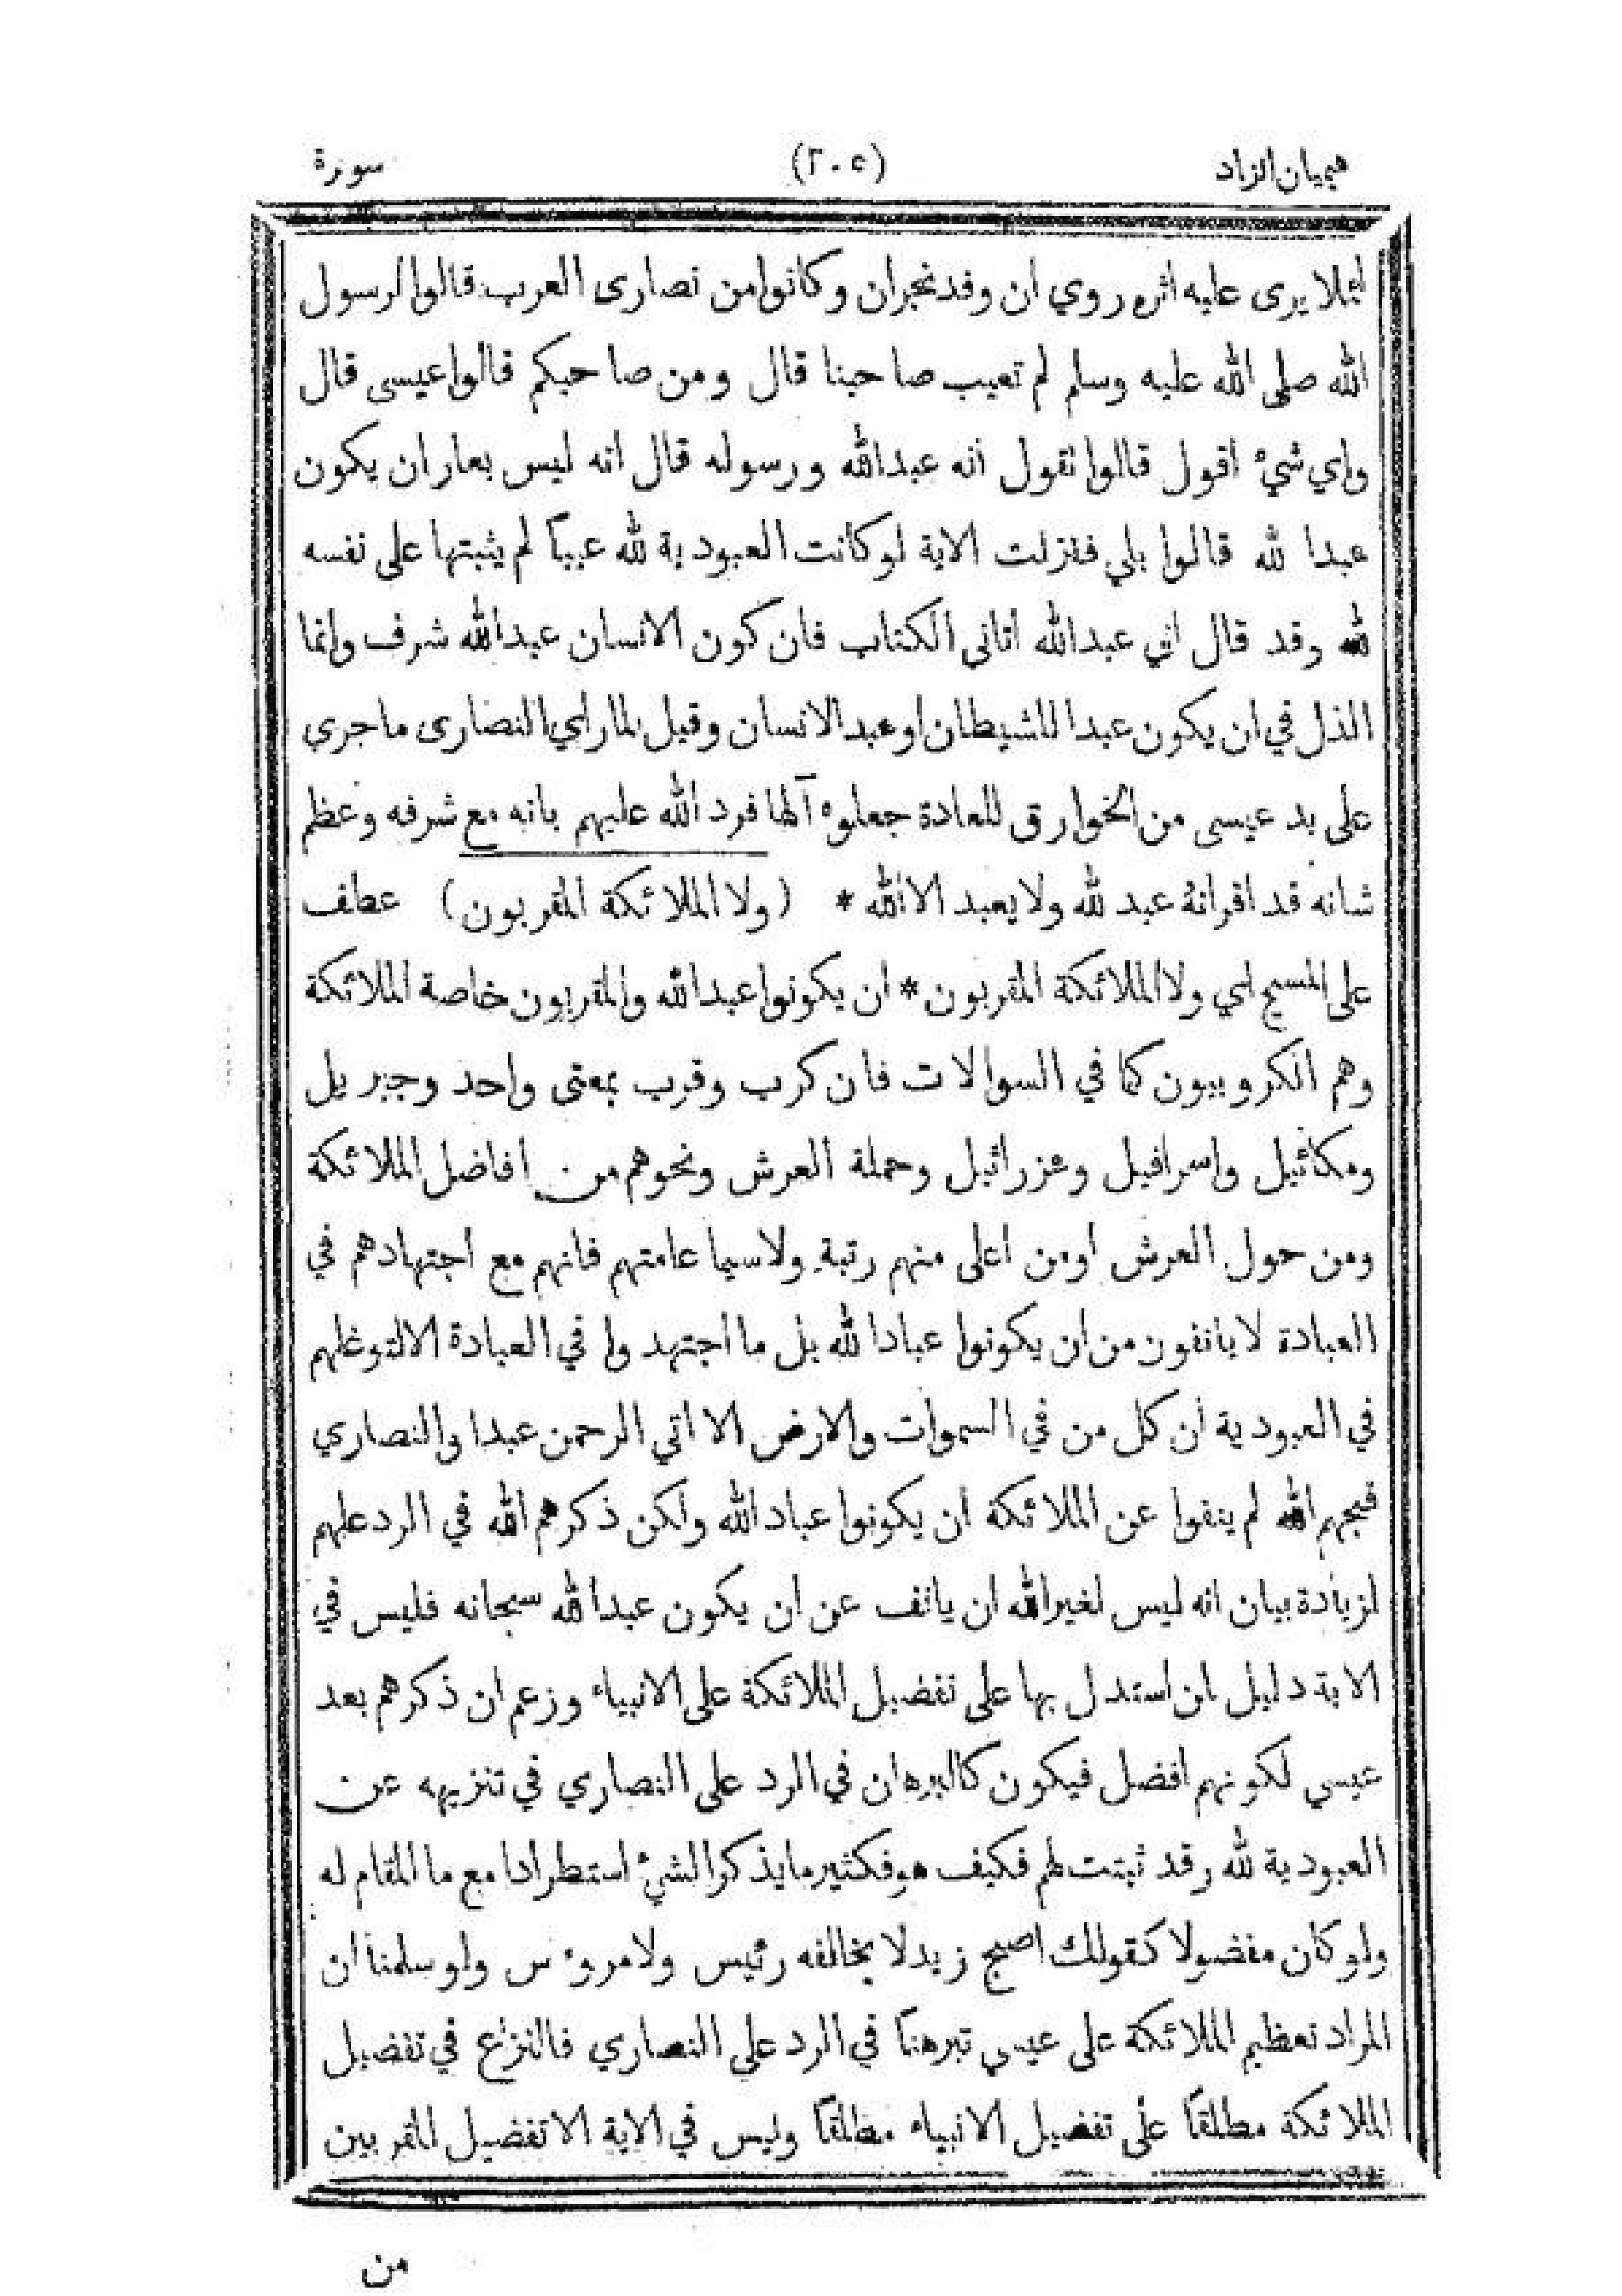 هيميان الزاد (٢٠٥) سورة
لئلا يرى عليه اثره روي ان وفد نجران وكانوا من نصارى العرب قالوا لرسول
الله صلى الله عليه وسلم لم تعيب صاحبنا قال ومن صاحبكم قالوا عيسى قال
واي شيء اقول قالوا تقول أنه عبدالله ورسوله قال انه ليس بعار ان يكون
عبدا لله قالوا بلي فنزلت الاية لو كانت العبودية لله عيباً لم يثبتها على نفسه
لله وقد قال اني عبدالله اتاني الكتاب فان كون الانسان عبدالله شرف وانما
الذل في ان يكون عبدا للشيطان او عبد الانسان وقيل لما راي النصارى ما جري
على يد عيسى من الخوارق للعادة جعلوه آلها فرد الله عليهم بانه مع شرفه وعظم
شانه قد اقر انهُ عبد لله ولا يعبد الا الله * (ولا الملائكة المقربون) عطف
على المسيح اي ولا الملائكة المقربون * ان يكونوا عبدا لله والمقربون خاصة الملائكة
وهم الكروبيون كما في السوالات فان كرب وقرب بمعنى واحد وجبريل
ومكائيل واسرافيل وعزرائيل وحملة العرش ونحوهم من افاضل الملائكة
ومن حول العرش اومن اعلى منهم رتبة ولاسيما عامتهم فانهم مع اجتهادهم في
العبادة لا يانفون من ان يكونوا عبادا لله بل ما اجتهدوا في العبادة الا لتوغلهم
في العبودية أن كل من في السموات والارض الا اتي الرحمن عبدا والنصاري
قبحهم الله لم ينفوا عن الملائكة ان يكونوا عباد الله ولكن ذكرهم الله في الرد عليهم
لزيادة بيان انه ليس لغير الله ان يانف عن ان يكون عبدا لله سبحانه فليس في
الاية دليل لمن استدل بها على تفضيل الملائكة على الانبياء وزعم ان ذكرهم بعد
عيسي لكونهم افضل فيكون كالبرهان في الرد على النصاري في تنزيهه عن
العبودية لله وقد ثبتت لهم فكيف هو فكثير ما يذكر الشيء استطرادا مع ما المقام له
ولو كان مفضولا كقولك اصبح زيد لا يخالفه رئيس ولا مروءس ولو سلمنا ان
المراد تعظيم الملائكة على عيسي تبرهناً في الرد على النصاري فالنزاع في تفضيل
الملائكة مطلقاً على تفضيل الانبياء مطلقاً وليس في الاية الا تفضيل المقربين
من